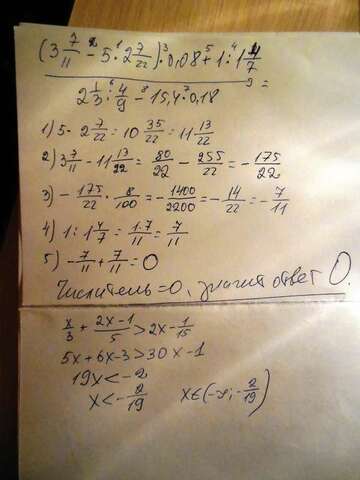 (3 7/11 - 5 · 2 7/22) · 0,08 + 1 : 1 4/7
2 1/3 : 4/9 - 15,4 · 0,18 =
1) 5 · 2 7/22 = 10 35/22 = 11 13/22
2) 3 7/11 - 11 13/22 = 80/22 - 255/22 = - 175/22
3) - 175/22 · 8/100 = - 1400/2200 = - 14/22 = - 7/11
4) 1 : 1 4/7 = 1·7/11 = 7/11
5) - 7/11 + 7/11 = 0
Числитель = 0, значит ответ 0.
x/3 + 2x-1/5 > 2x - 1/15
5x + 6x - 3 > 30x - 1
19x < -2
x < - 2/19 x ∈ (-∞; - 2/19)